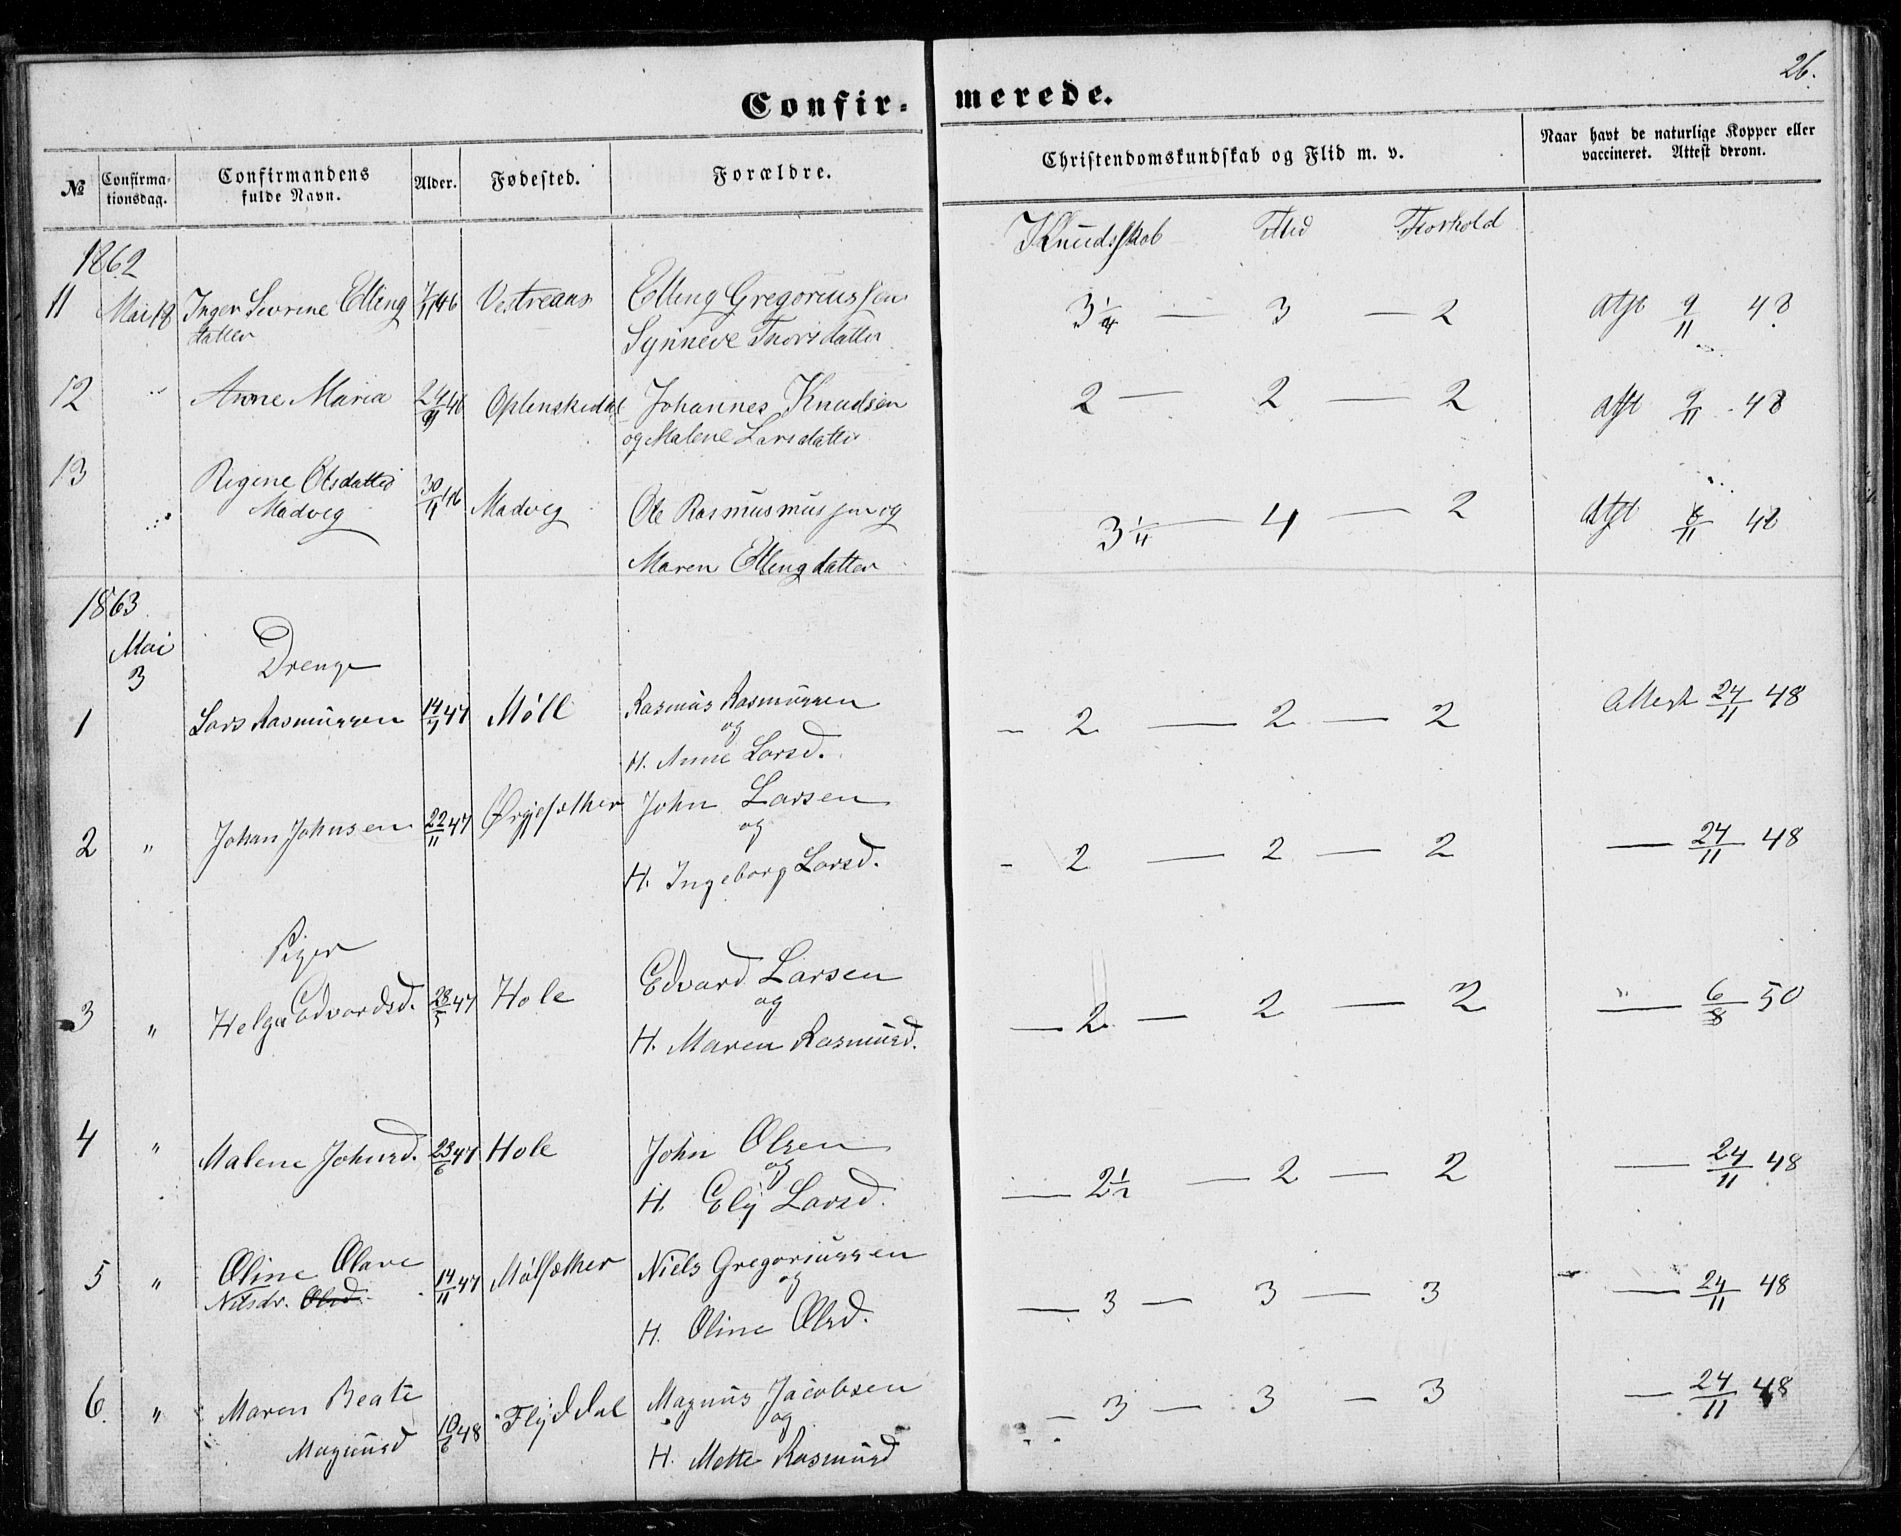 26.
Confir- merede.
№ Confirma-tionsdag. Confirmandens fulde Navn. Alder. Fødested. Forældre. Christendomskundskab og Flid m. v. Naar havt de naturlige Kopper eller vaccineret. Attest derom.
Kundskab Flid Forhold
1862
11 Mai 18 Inger Sevrine Elling 46 Elling Gregoriussen 3 1/4 — 3 — 2 Attst 9/11 48
datter Synneve Thorsdatter
12 " Anne Maria 46 Johannes Knudsen 2 — 2 — 2 Attst 9/11 48
og Malene Larsdatter
13 " Regine Olsdatter 30/11 46 Madvig Ole Rasmusmussen og 4 — 2 Attst 48
Madvig Maren Ellingdatter
1863
Mai
3 Drenge
1 Lars Rasmussen 14/7 47 Möll Rasmus Rasmussen - 2 — 2 — 2 Attest 24/11 48
og
H. Anne Larsd.
2 " Johan Johnsen 22/11 47 John Larsen - 2 — 2 — 2 — 24/11 48
og
H. Ingeborg Larsd.
Piger
3 " Helga Edvardsd. 28/5 47 Hole Edvard Larsen — 2 — 2 — 2 — 6/8 50
og
H. Maren Rasmusd.
4 " Malene Johnsd. 23/6 47 Hole John Olsen — 2 1/2 — 2 — 2 — 24/11 48
og
H. Ely Larsd.
5 " Oline Olave 14/11 47 Mölsæther Niels Gregoriussen — 3 — 3 — 3 — 24/11 48
Nilsdr. Olsd. og
H. Oline Olsd.
6. " Maren Beate 10/6 48 Flyddal Magnus Jacobsen — 3 — 3 — 3 — 24/11 48
Magnusd og
H. Mette Rasmusd